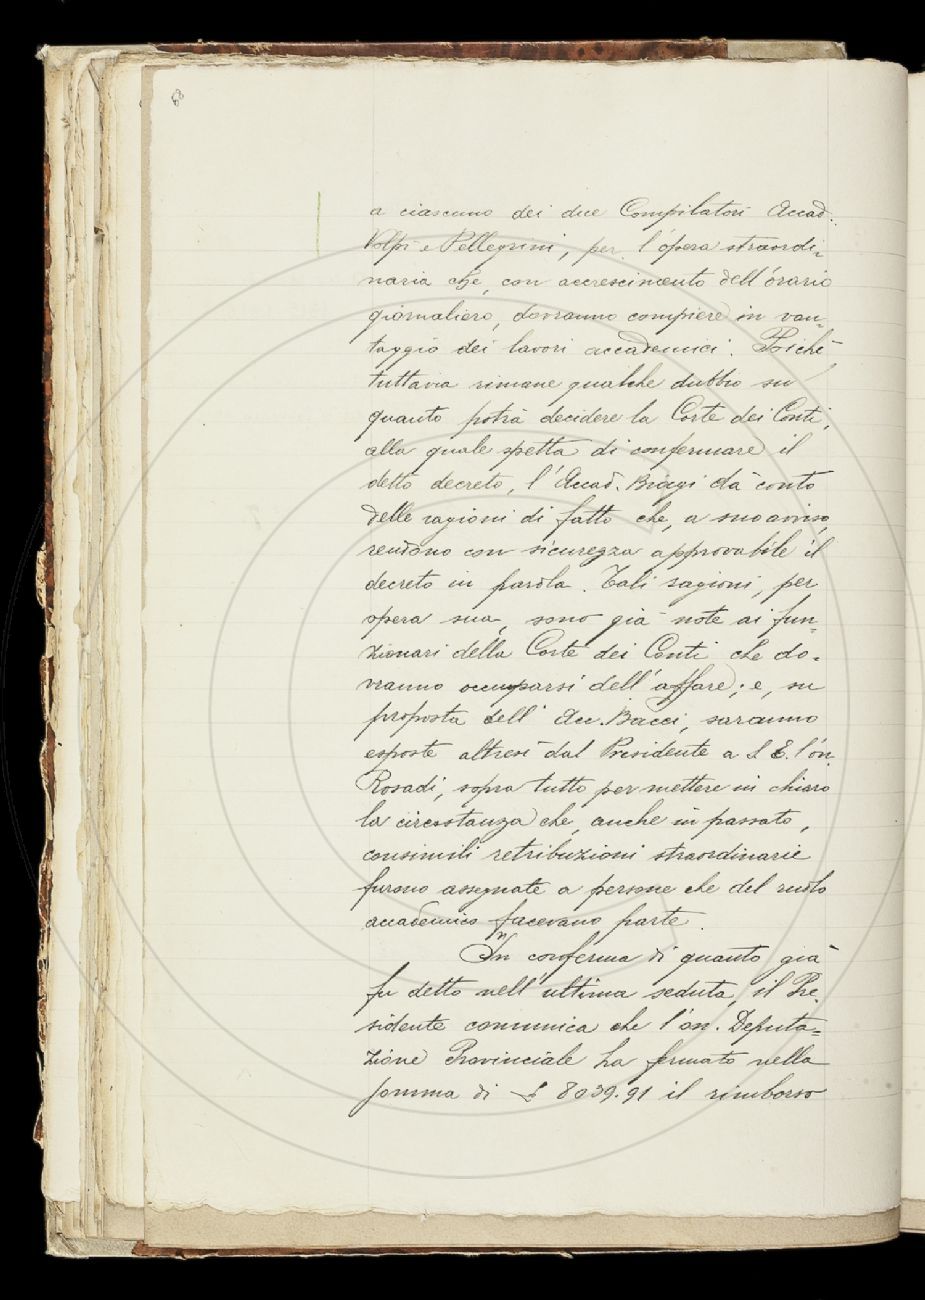 68
a ciascuno dei due Compilatori Accad.
Volpi e Pellegrini, per l'opera straordi=
naria che, con accrescimento dell'orario
giornaliero, dovranno compiere in van=
taggio dei lavori accademici. Poichè
tuttavia rimane qualche dubbio su
quanto potrà decidere la Corte dei Conti,
alla quale spetta di confermare il
detto decreto, l'Accad. Biagi dà conto
delle ragioni di fatto che, a suo avviso,
rendono con sicurezza approvabile il
decreto in parola. Tali ragioni, per
opera sua, sono già note ai fun=
zionari della Corte dei Conti che do=
vranno occuparsi dell'affare; e, su
proposta dell'Acc. Bacci, saranno
esposte altresì dal Presidente a S. E. l'on.
Rosadi, sopra tutto per mettere in chiaro
la circostanza che, anche in passato,
consimili retribuzioni straordinarie
furono assegnate a persone che del ruolo
accademico facevano parte.
In conferma di quanto già
fu detto nell'ultima seduta, il Pre=
sidente comunica che l'on. Deputa=
zione Provinciale ha fermato nella
somma di £ 8039.91 il rimborso